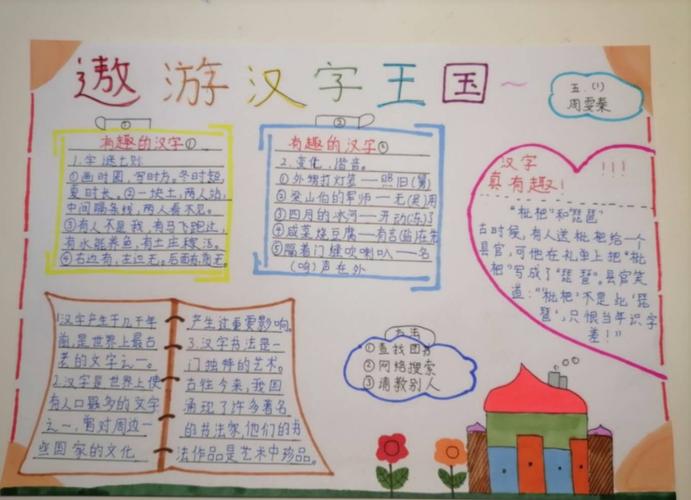 遨游汉字王国~
五.(1)
周雯蓁
①
有趣的汉字①
1.字谜七则
①画时圆,写时方,冬时短,
夏时长。②一块土,两人站,
中间隔条线,两人看不见。
③有人不是我,有马飞跑过,
有水能养鱼,有土庄稼活。
④右边有,左边无,后面有
②
有趣的汉字②
2.变化、谐音。
①外甥打灯笼——照旧(舅)
②梁山伯的军师——无(吴)用
③四月的冰河——开动(冻)了
④咸菜烧豆腐——有言(盐)在先
⑤隔着门缝吹喇叭——名
(鸣)声在外
汉字 !!!
真有趣!
“枇杷”和“琵琶”
古时候,有人送枇杷给一个
县官,可他在礼单上把“枇
杷”写成了“琵琶”。县官笑
道:“‘枇杷’不是此‘琵
琶’,只恨当年识字
差!”
1.汉字产生于几千年
前,是世界上最古
老的文字之一。
2.汉字是世界上使
用人口最多的文字
之一,曾对周边一
些国家的文化
产生过重要影响。
3.汉字书法是一
门独特的艺术。
古往今来,我国
涌现了许多著名
的书法家,他们的书
法作品是艺术中珍品。
办法
①查找图书
②网络搜索
③请教别人